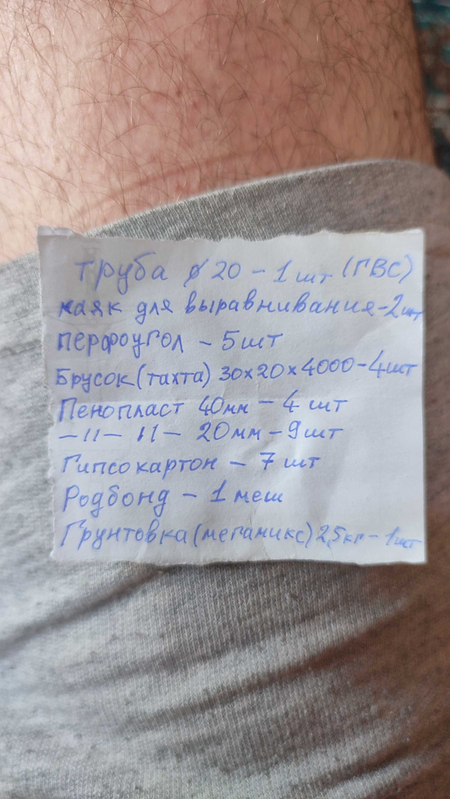 труба ø 20 - 1 шт (ГВС)
маяк для выравнивания - 2 шт
перфоугол - 5 шт
Брусок (тахта) 30х20х4000 - 4 шт
Пенопласт 40мм - 4 шт
-//- //- 20мм - 9 шт
Гипсокартон - 7 шт
Родбонд - 1 меш
Грунтовка (мегамикс) 2,5кг - 1 шт